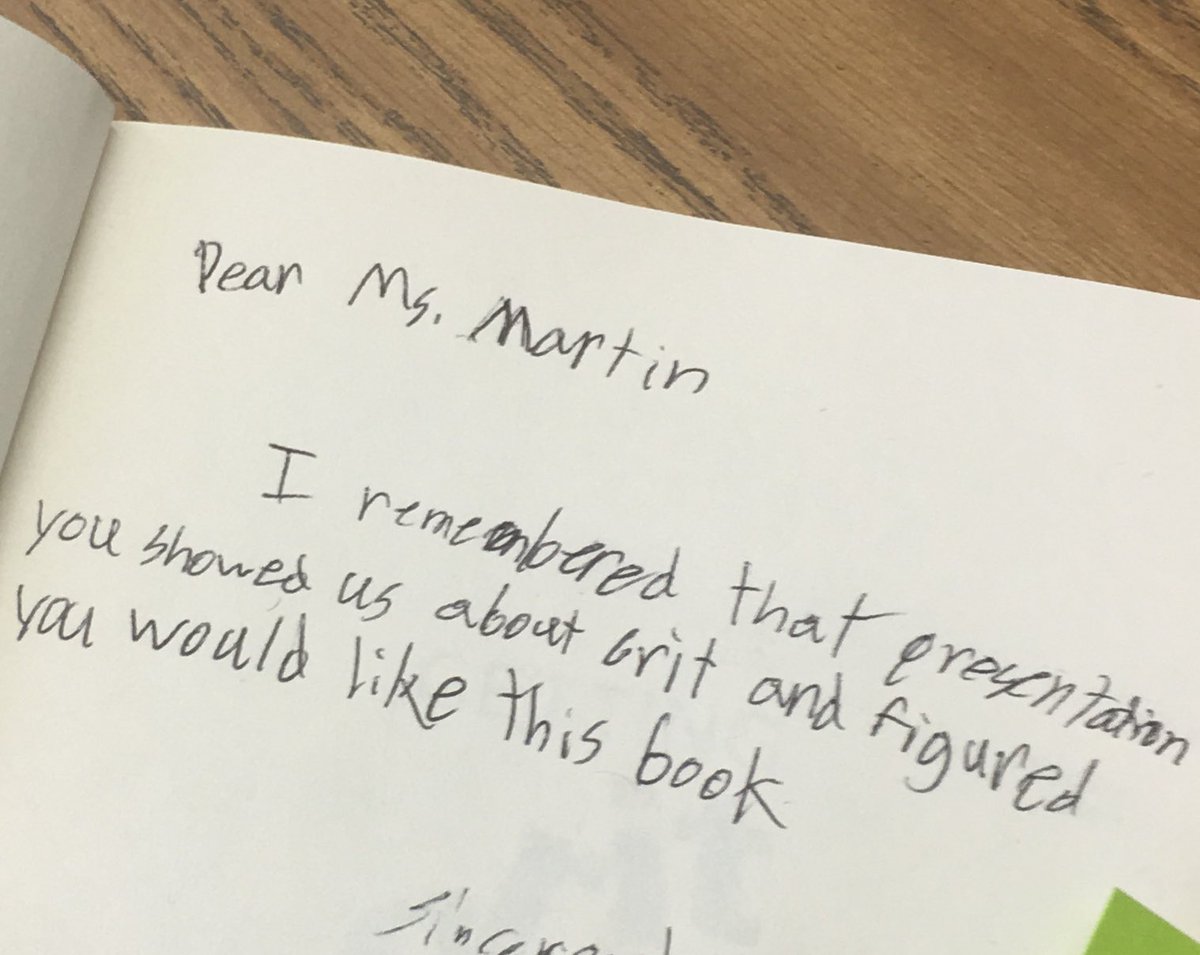 Dear Ms. Martin
I remembered that presentation
you showed us about Grit and figured
you would like this book